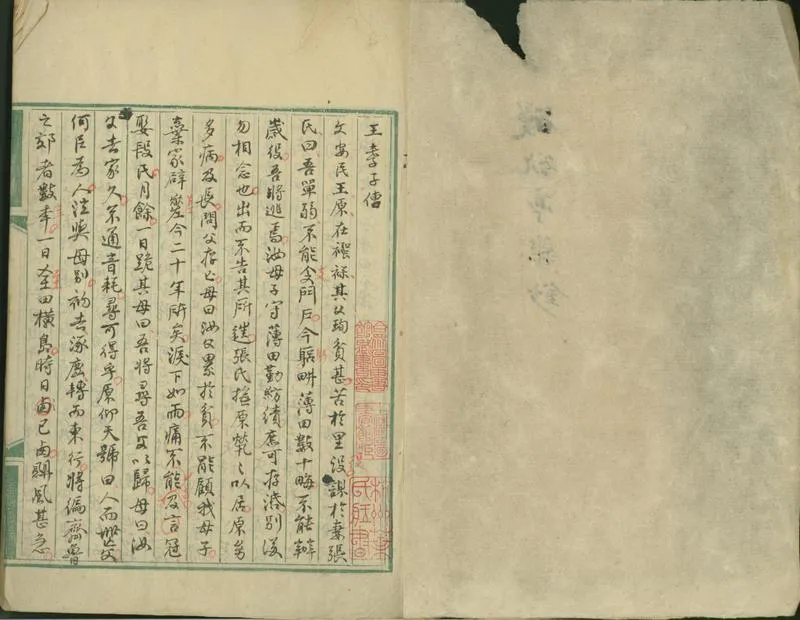 王孝子傳
文安民王原在襁褓其父珣貧甚苦於里役謀於妻張
氏曰吾單弱不能支門戶今軀畊薄田數十畮不能辦
歲役吾將逃焉汝母子守薄田勤紡績庶可存活別後
勿相念也出而不告其所適張氏撫原煢〻以居原劣
多病及長問父存亡母曰汝父累於貧不能顧我母子
棄家辟差今二十年所矣淚下如雨痛不能及言冠
娶段氏月餘一日跪其母曰吾將尋吾父以歸母曰汝
父去家久不通音耗尋可得乎原仰天號曰人而無父
何以為人泣與母別初去涿鹿轉而東行將徧齊魯
之郊者數年一日至田橫島時日鹵已鹵颶風甚急